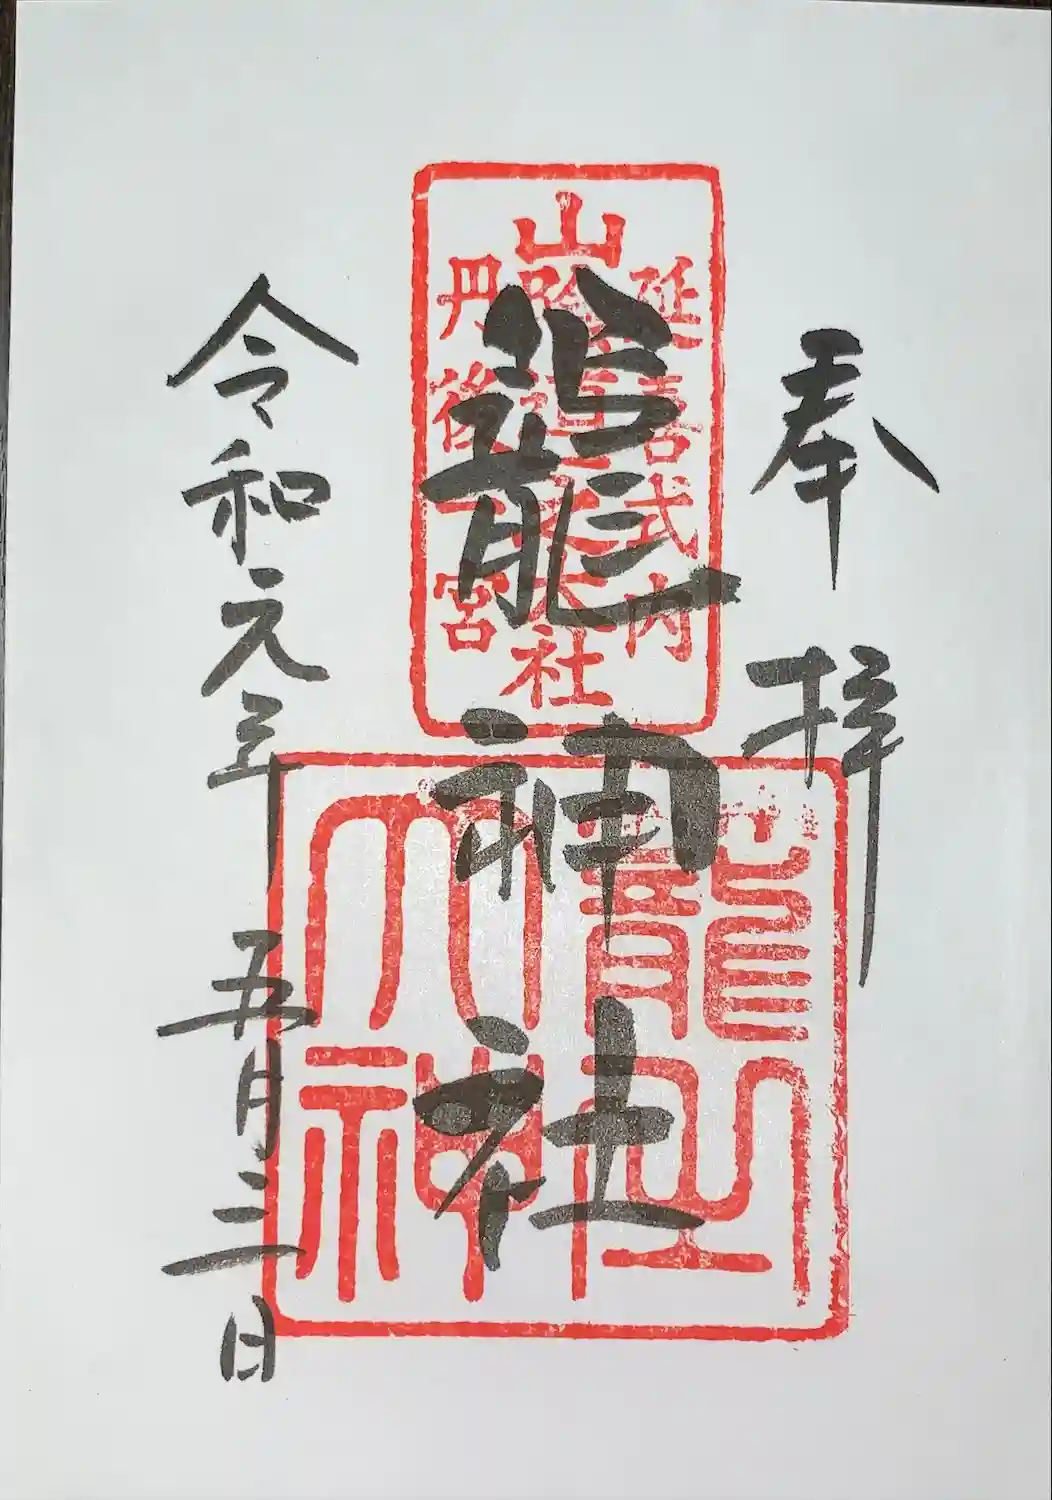 奉拝
延喜式内
山陰道 大社
丹後一宮
籠神社
籠之
大神
令和元年五月三日